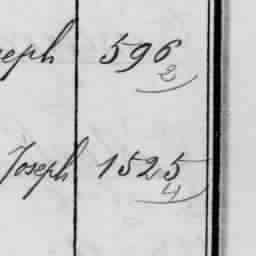 seph 596
2
Joseph 1525
4